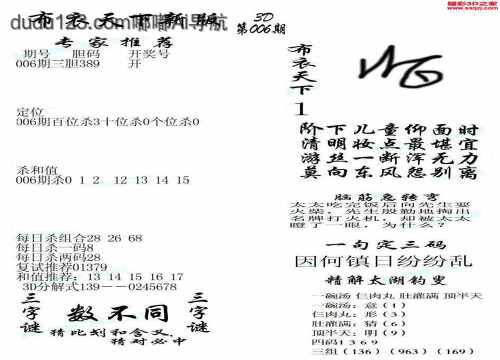 布衣天下新版
dudu123.com嘟嘟AI导航
3D
第006期
彩吧3D之家
www.sszpj.com
专家推荐
期号 胆码 开奖号
006期三胆389 开
定位
006期百位杀3十位杀0个位杀0
杀和值
006期杀0 1 2 12 13 14 15
每日杀组合28 26 68
每日杀一码8
每日杀两码28
复试推荐01379
和值推荐: 13 14 15 16 17
3D分解式139--0245678
三字谜
数不同
三字谜
猜此划和含义,
猜对必中
布衣天下
1
阶下儿童仰面时
清明妆点最堪宜
游丝一断浑无力
莫向东风怨别离
脑筋急转弯
太太吃完饭后向先生要
火柴, 先生殷勤地掏出
名牌打火机, 却被太太
瞪了一眼, 为什么?
一句定三码
因何镇日纷纷乱
精解太湖钓叟
一碗汤 仨肉丸 肚灌满 顶半天
一碗汤: 意 (1)
仨肉丸: 形 (3)
肚灌满: 猜 (6)
顶半天: 明 (9)
四码1 3 6 9
三组 (136) (963) (169)